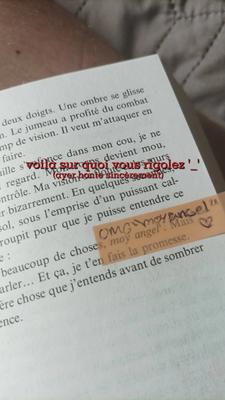 deux doigts. Une ombre se glisse
n. Le jumeau a profité du combat
mp de vision. Il veut m'attaquer en
faire.
voilà sur quoi vous rigolez '_'
(ayer honte sincèrement)
ille s'enfonce dans mon cou, je ne
regard. M
devient mou,
ontrôle. Ma vision
ours
er bizarrement. En quelques se
sol, sous l'emprise d'un puissant cal-
roupit pour que je puisse entendre ce
e :
OMG "moy angel" ♡
beaucoup de choses, moy angel. Mais
arler... Et ça, je t'en fais la promesse.
ère chose que j'entends avant de sombrer
ence.